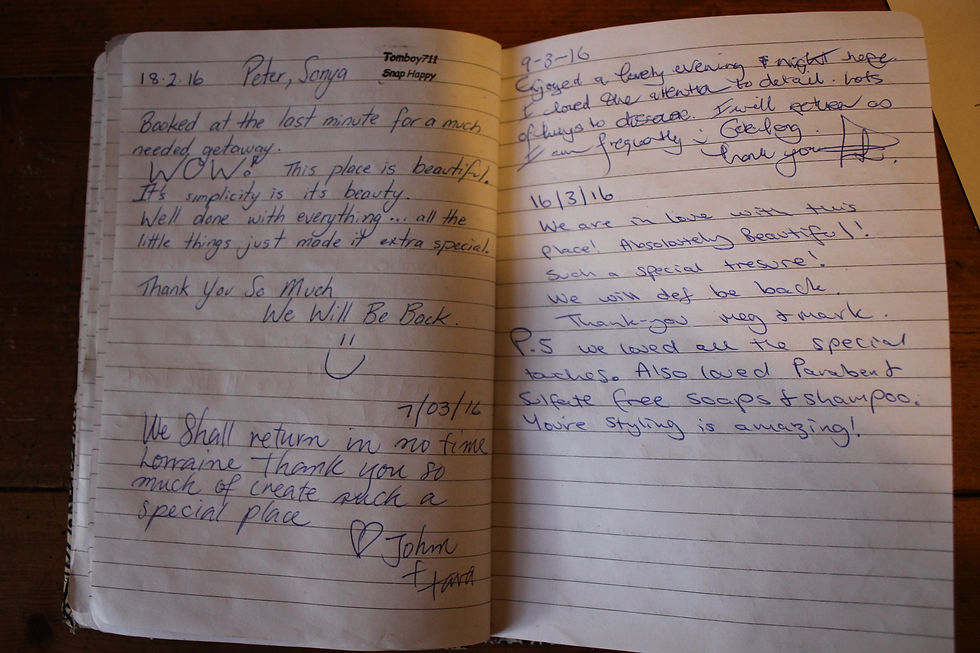 18.2.16 Peter, Sonya
Tomboy711
Snap Happy
Booked at the last minute for a much
needed getaway.
WOW! This place is beautiful.
It's simplicity is it's beauty.
Well done with everything... all the
little things just made it extra special.
Thank You So Much
We Will Be Back.
7/03/16
We Shall return in no time
Lorraine Thank you so
much of create such a
special place
John
9-3-16
Enjoyed a lovely evening & night here.
I loved the attention to detail. Lots
of ways to . I will return as
I am frequently in Geelong.
Thank you
16/3/16
We are in love with this
place! Absolutely Beautiful!
Such a special tresure!
We will def be back.
Thank-you Meg & Mark.
P.S we loved all the special
touches. Also loved Paraben &
Sulfate free soaps & shampoo.
You're styling is amazing!